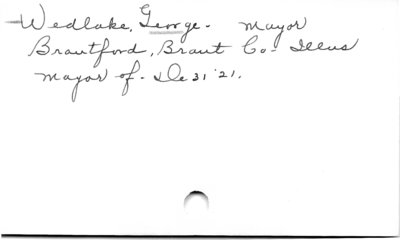 Wedlake, George. Mayor
Brantford, Brant Co. Illus
mayor of. De 31 '21.